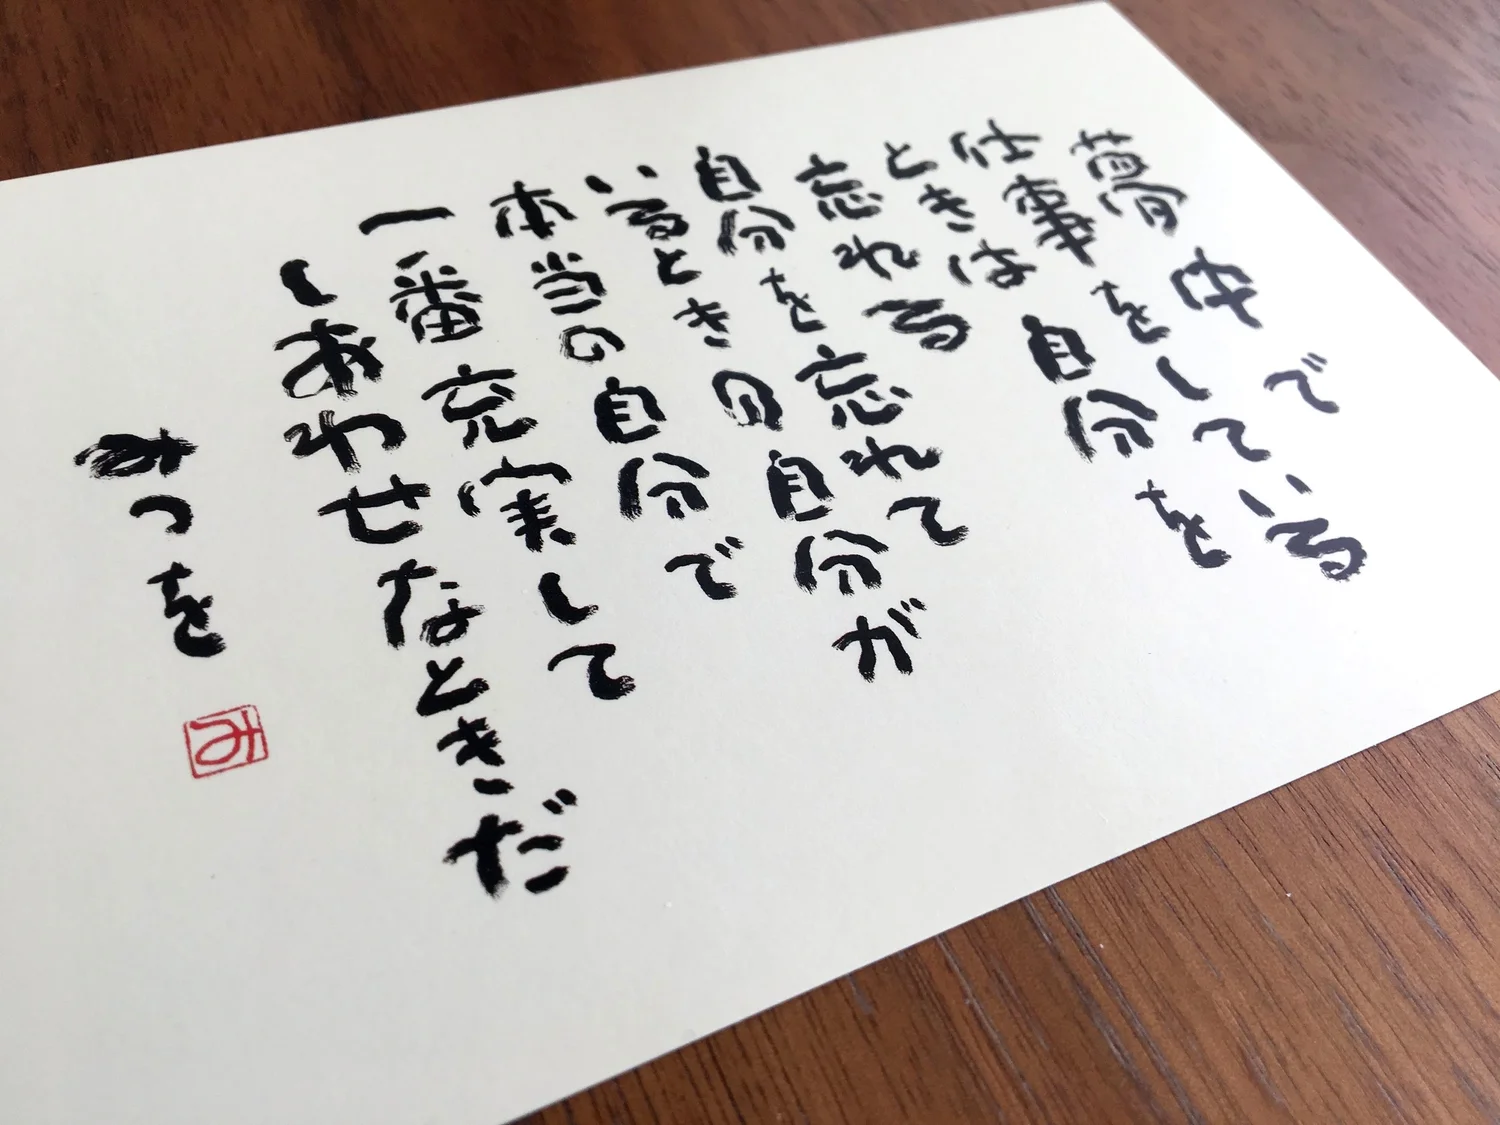 夢中で
仕事をしている
ときは自分を
忘れる
自分を忘れて
いるときの自分が
本当の自分で
一番充実して
しあわせなときだ
みつを